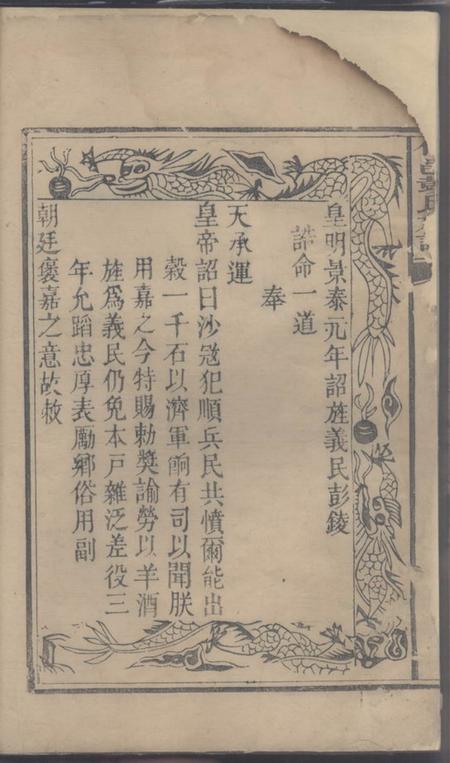 皇明景泰元年詔旌義民彭鋑
誥命一道
奉
天承運
皇帝詔曰沙寇犯順兵民共憤爾能出
穀一千石以濟軍餉有司以聞朕
用嘉之今特賜勅獎諭勞以羊酒
旌爲義民仍免本戶雜泛差役三
年允蹈忠厚表勵鄉俗用副
朝廷褒嘉之意故敕